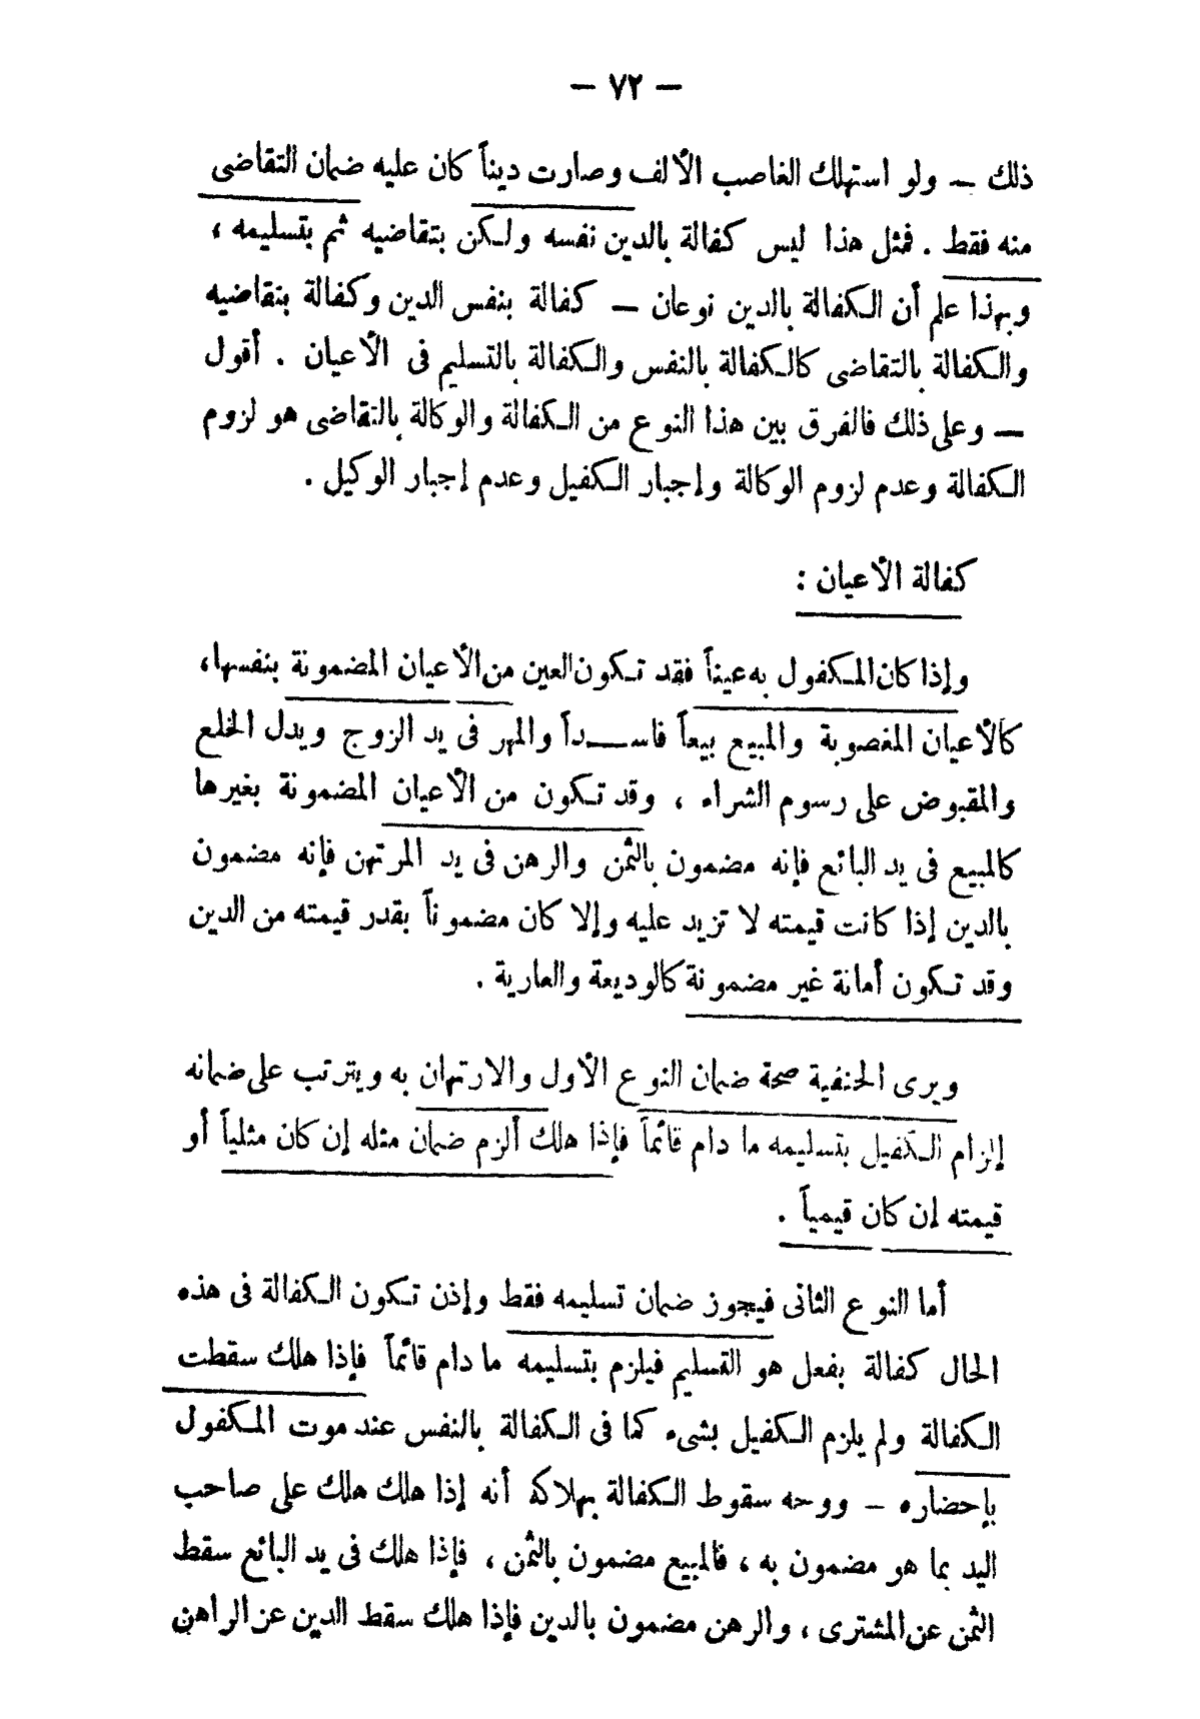 — ٧٢ —
ذلك — ولو استهلك الغاصب الألف وصارت ديناً كان عليه ضمان التقاضى
منه فقط . فمثل هذا ليس كفالة بالدين نفسه ولكن بتقاضيه ثم بتسليمه ،
وبهذا علم أن الكفالة بالدين نوعان — كفالة بنفس الدين وكفالة بتقاضيه
والكفالة بالتقاضى كالكفالة بالنفس والكفالة بالتسليم فى الأعيان . أقول
— وعلى ذلك فالفرق بين هذا النوع من الكفالة والوكالة بالتقاضى هو لزوم
الكفالة وعدم لزوم الوكالة وإجبار الكفيل وعدم إجبار الوكيل .
كفالة الأعيان :
وإذا كان المكفول به عيناً فقد تكون العين من الأعيان المضمونة بنفسها ،
كالأعيان المغصوبة والمبيع بيعاً فاسداً والمهر فى يد الزوج وبدل الخلع
والمقبوض على رسوم الشراء ، وقد تكون من الأعيان المضمونة بغيرها
كالمبيع فى يد البائع فإنه مضمون بالثمن والرهن فى يد المرتهن فإنه مضمون
بالدين إذا كانت قيمته لا تزيد عليه وإلا كان مضموناً بقدر قيمته من الدين
وقد تكون أمانة غير مضمونة كالوديعة والعارية .
ويرى الحنفية صحة ضمان النوع الأول والارتهان به ويترتب على ضمانه
إلزام الكفيل بتسليمه ما دام قائماً فإذا هلك ألزم ضمان مثله إن كان مثلياً أو
قيمته إن كان قيمياً .
أما النوع الثانى فيجوز ضمان تسليمه فقط وإذن تكون الكفالة فى هذه
الحال كفالة بفعل هو التسليم فيلزم بتسليمه ما دام قائماً فإذا هلك سقطت
الكفالة ولم يلزم الكفيل بشىء كما فى الكفالة بالنفس عند موت المكفول
بإحضاره — ووجه سقوط الكفالة بهلاكه أنه إذا هلك هلك على صاحب
اليد بما هو مضمون به ، فالمبيع مضمون بالثمن ، فإذا هلك فى يد البائع سقط
الثمن عن المشترى ، والرهن مضمون بالدين فإذا هلك سقط الدين عن الراهن